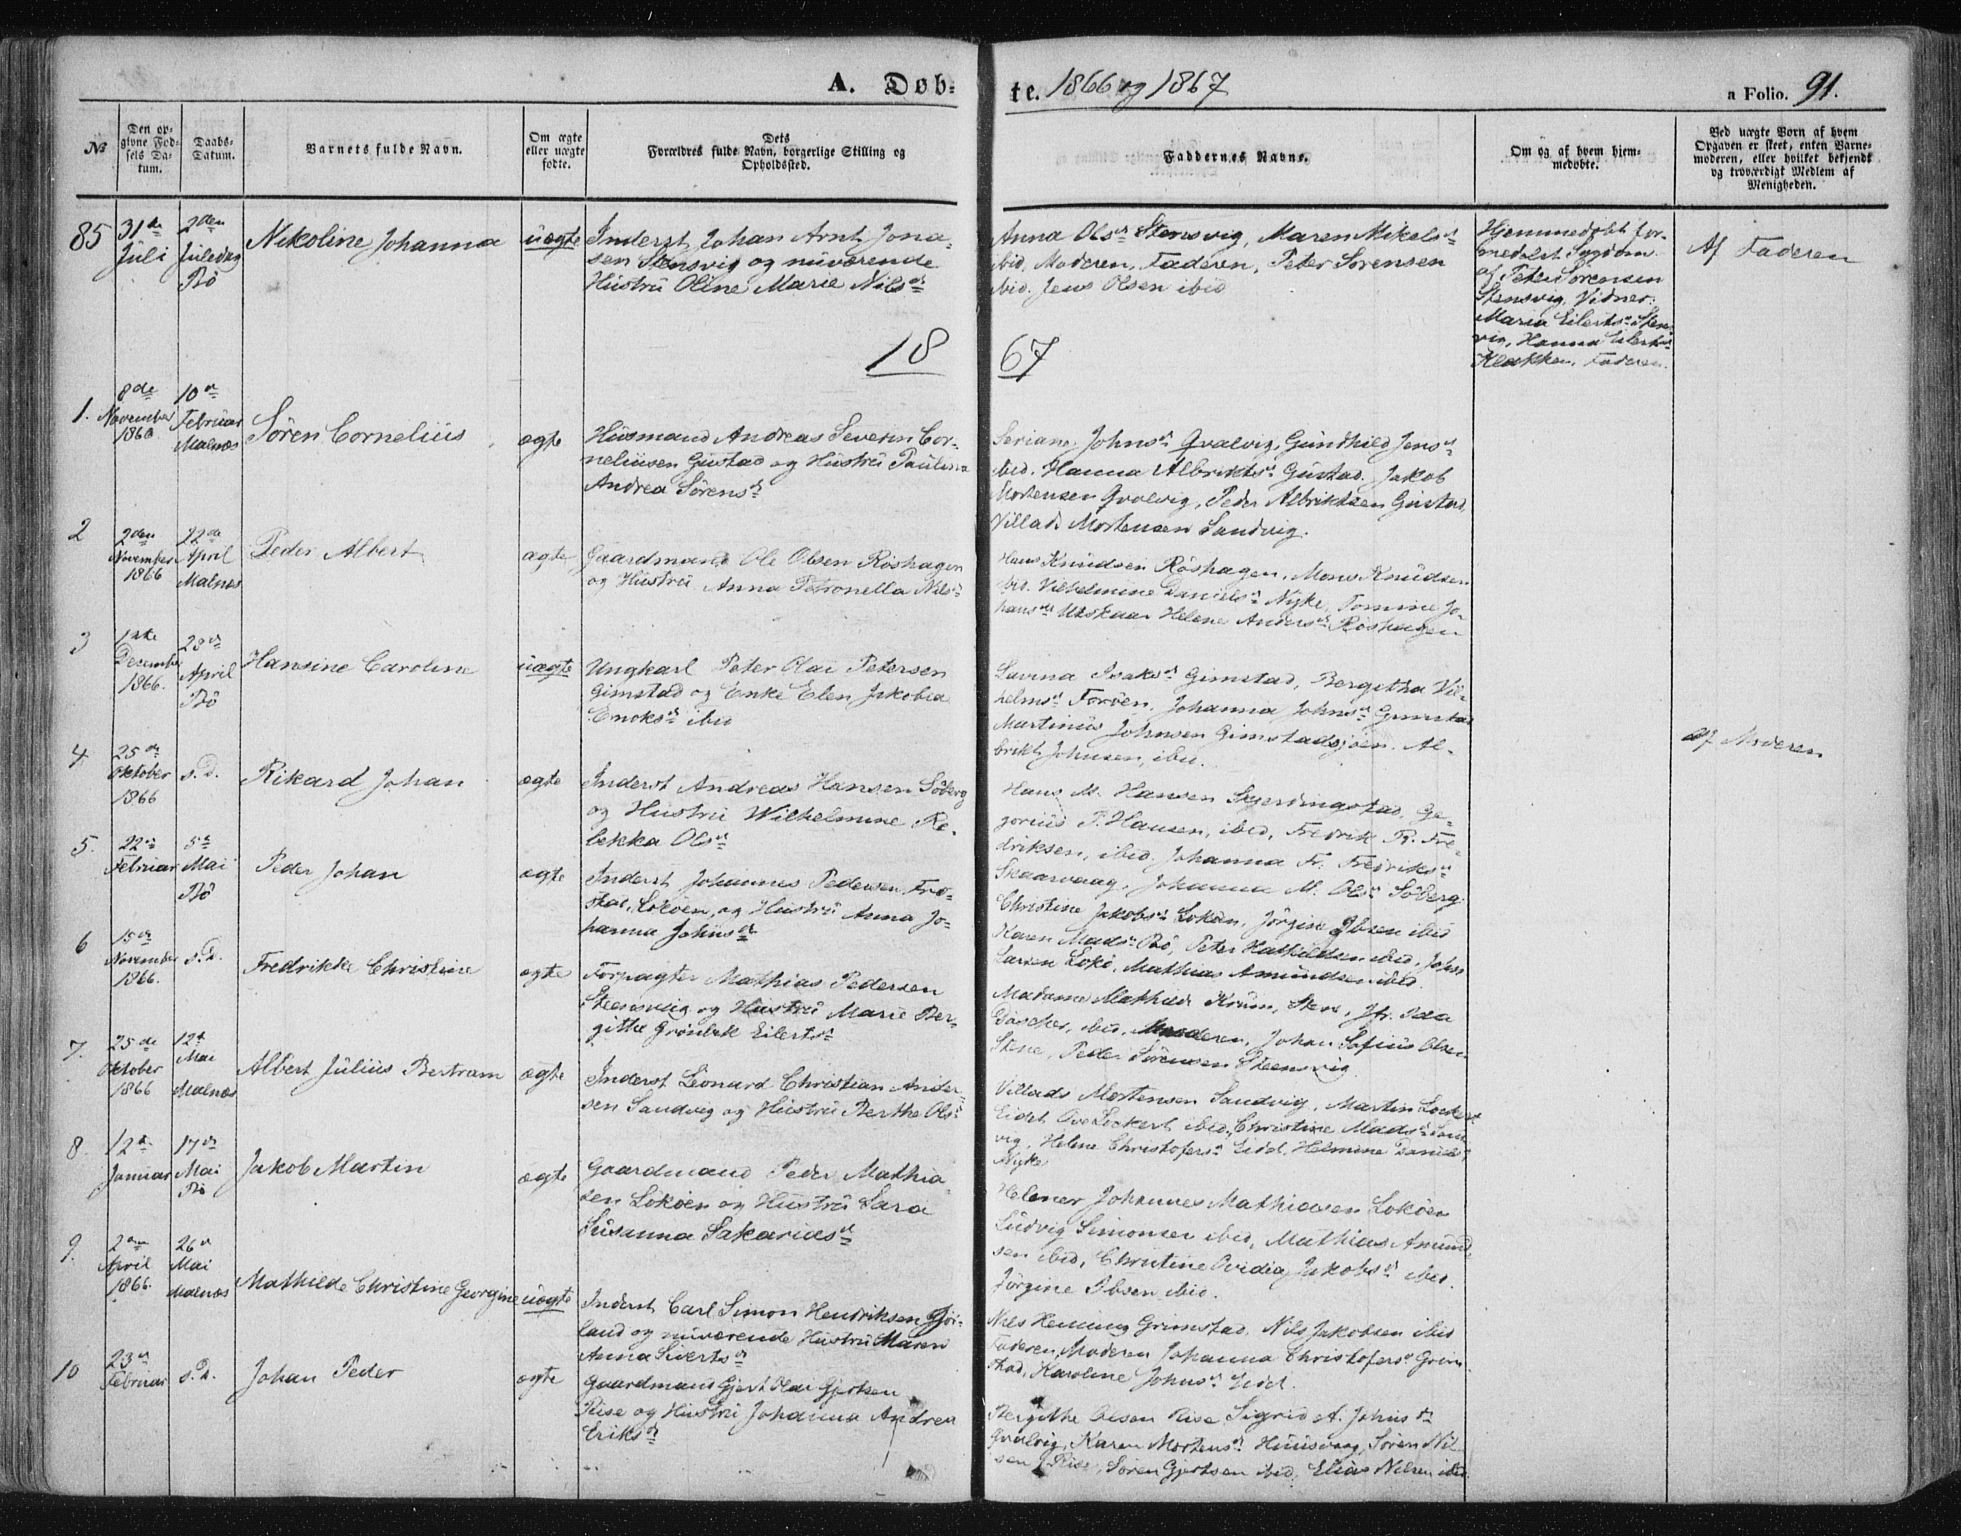 A. Døb-
te. 1866 og 1867
a Folio. 91.
No
Den op-
givne Fød-
sels Da-
tum.
Daabs-
Datum.
Barnets fulde Navn.
Om ægte
eller uægte
fødte.
Dets
Forældres fulde Navn, borgerlige Stilling og
Opholdssted.
Faddernes Navne.
Om og af hvem hjem-
medøbte.
Ved uægte Børn af hvem
Opgaven er skeet, enten Barne-
moderen, eller hvilket bekjendt
og troværdigt Medlem af
Menigheden.
85
31te
Juli
2den
Juledag
Bö
Nikoline Johanna
uægte
Inderst Johan Arnt Jona-
sen Stensvig og nuværende
Hustru Oline Marie Nilsdr
Anna Olsdr Stensvig, Maren Mikelsdr
ibid, Moderen, Faderen, Peter Sörensen
ibid. Jens Olsen ibid
Hjemmedöbt for-
medelst Sygdom
af Peter Sörensen
Stensvig. Vidner:
Maria Eilertsdr Sten-
vig, Hanna Eilertsdr
Klakken, Faderen.
Af Faderen
18 67
1.
8de
November
1866
10de
Februar
Malnæs
Sören Cornelius
ægte
Husmand Andreas Severin Cor-
neliusen Gustad og Hustru Paulina
Andrea Sörensdr
Johnsdr Qvalvig, Gundhild Jensdr
ibid. Hanna Albriktsdr Gustad. Jakob
Mortensen Qvalvig, Peder Albriktsen Gustad
Villads Mortensen Sandvig.
2
2den
November
1866
22de
April
Malnæs
Peder Albert
ægte
Gaardmand Ole Olsen Röshagen
og Hustru Anna Petronella Nilsdr
Hans Knudsen Röshagen, Mons Knudsen
ibid. Vilhelmine Danielsdr Nyke, Tomine Jo-
hansdr Utskaar Helene Andersdr Röshagen
3
1ste
Desember
1866.
28de
April
Bö
Hansine Caroline
uægte
Ungkarl Peter Olai Petersen
Gimstad og Enke Elen Jakobea
Enoksdr ibid
Lavina Isaksdr Gimstad, Bergitha Vil-
helmsdr Foröen. Johanna Johnsdr Gimstad
Martinus Johnsen Gimstadsjöen. Al-
brikt Johnsen, ibid.
Af Moderen
4
25de
Oktober
1866
s. D.
Rikard Johan
ægte
Inderst Andreas Hansen Söberg
og Hustru Wilhelmine Re-
bekka Olsdr
Hans M. Hansen Skjerdingstad, Ge-
gorius P. Hansen, ibid, Fredrik R. Fre-
driksen, ibid. Johanna Fr. Fredriksdr
Skaarvaag, Johanna M. Olsdr Söberg
5.
22de
Februar
5te
Mai
Bö
Peder Johan
ægte
Inderst Johannes Pedersen
Loköen, og Hustru Anna Jo-
hanna Johnsdr
Christine Jakobsdr Loköen, Jörgine Ibsen ibid
Karen Madsdr Bö, Peter Hatkildsen ibid, Johs
Larsen Lokö, Mathias Amundsen ibid.
6
15de
November
1866.
s. D.
Fredrikke Christine
ægte
Forpagter Mathias Pedersen
Steensvig og Hustru Marie Ber-
gitte Grönbek Eilertsdr
Madame Mathilde Krum, Stene, Jfr. Ida
ibid, Moderen, Johan Sofius Olsen
Stene, Peder Sörensen Steensvig
7.
25de
Oktober
1866
12te
Mai
Malnæs
Albert Julius Bertram
ægte
Inderst Leonard Christian Ander-
sen Sandvig og Hustru Berthe Olsdr
Villads Mortensen Sandvig, Martin Lockert
Eidet Ove Lockert ibid, Christine Madsdr Sand-
vig, Helene Christofersdr Eidet, Helmine Danielsdr
Nyke
8.
12te
Januar
17de
Mai
Bö
Jakob Martin
ægte
Gaardmand Peder Mathia-
sen Loköen og Hustru Sara
Susanna Sakariasdr
Johannes Mathiasen Loköen
Ludvig Simonsen ibid, Mathias Amund-
sen ibid, Christine Ovidia Jakobsdr ibid.
Jörgine Ibsen ibid.
9.
2den
April
1866.
26de
Mai
Malnæs
Mathilde Christine Georgine
uægte
Inderst Carl Simon Hendriksen Fjör-
land og nuværende Hustru Maren
Anna Sivertsdr
Niels Heming Grimstad, Nils Jakobsen ibid
Faderen, Moderen Johanna Christofersdr Grim-
stad, Karoline Johnsdr Eidet.
10
23de
Februar
s. D.
Johan Peder
ægte
Gaardmand Gjert Olai Gjertsen
Rise og Hustru Johanna Andrea
Eriksdr
Bergithe Olsen Rise, Sigrid A. Johnsdr
Qvalvig, Karen Mortensdr Huusvaag, Sören Nil-
sen Rise, Sören Gjertsen ibid, Elias Nilsen ibid